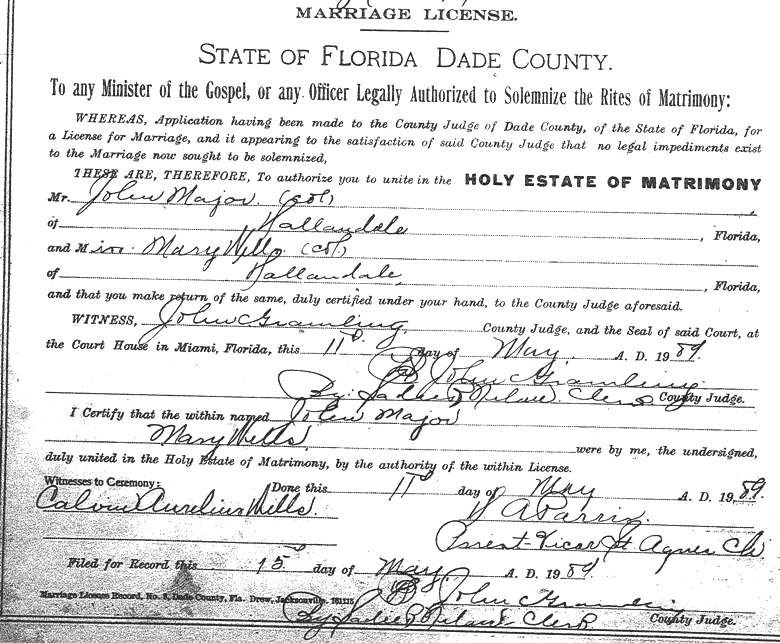 MARRIAGE LICENSE.
STATE OF FLORIDA DADE COUNTY.
To any Minister of the Gospel, or any Officer Legally Authorized to Solemnize the Rites of Matrimony:
WHEREAS, Application having been made to the County Judge of Dade County, of the State of Florida, for
a License for Marriage, and it appearing to the satisfaction of said County Judge that no legal impediments exist
to the Marriage now sought to be solemnized,
THESE ARE, THEREFORE, To authorize you to unite in the HOLY ESTATE OF MATRIMONY
Mr. John Major (col)
of Hallandale, Florida,
and Miss Mary Wells (col)
of Hallandale, Florida,
and that you make return of the same, duly certified under your hand, to the County Judge aforesaid.
WITNESS, John C Gramling County Judge, and the Seal of said Court, at
the Court House in Miami, Florida, this 11 day of May A. D. 19
John C Gramling
County Judge.
By: Clerk
I Certify that the within named John Major
Mary Wells were by me, the undersigned,
duly united in the Holy Estate of Matrimony, by the authority of the within License.
Witnesses to Ceremony: Done this 11 day of May A. D. 19
Calvin Aurelius Wells
Priest-Vicar St. Agnes Ch
Filed for Record this 15 day of May A. D. 19
John C Gramling
County Judge.
Marriage License Record, No. Dade County, Fla. Drew, Jacksonville.
By Clerk